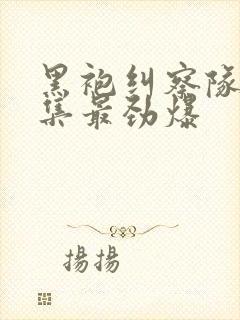 黑袍纠察队
集最劲爆
揚揚